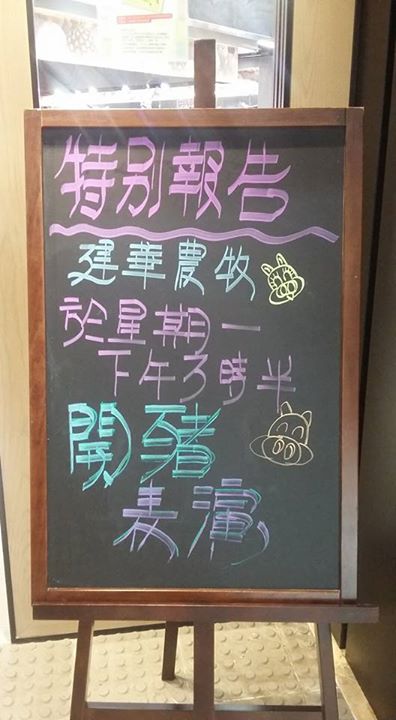 特別報告
建華農牧
於星期一
下午3時半
開豬
表演